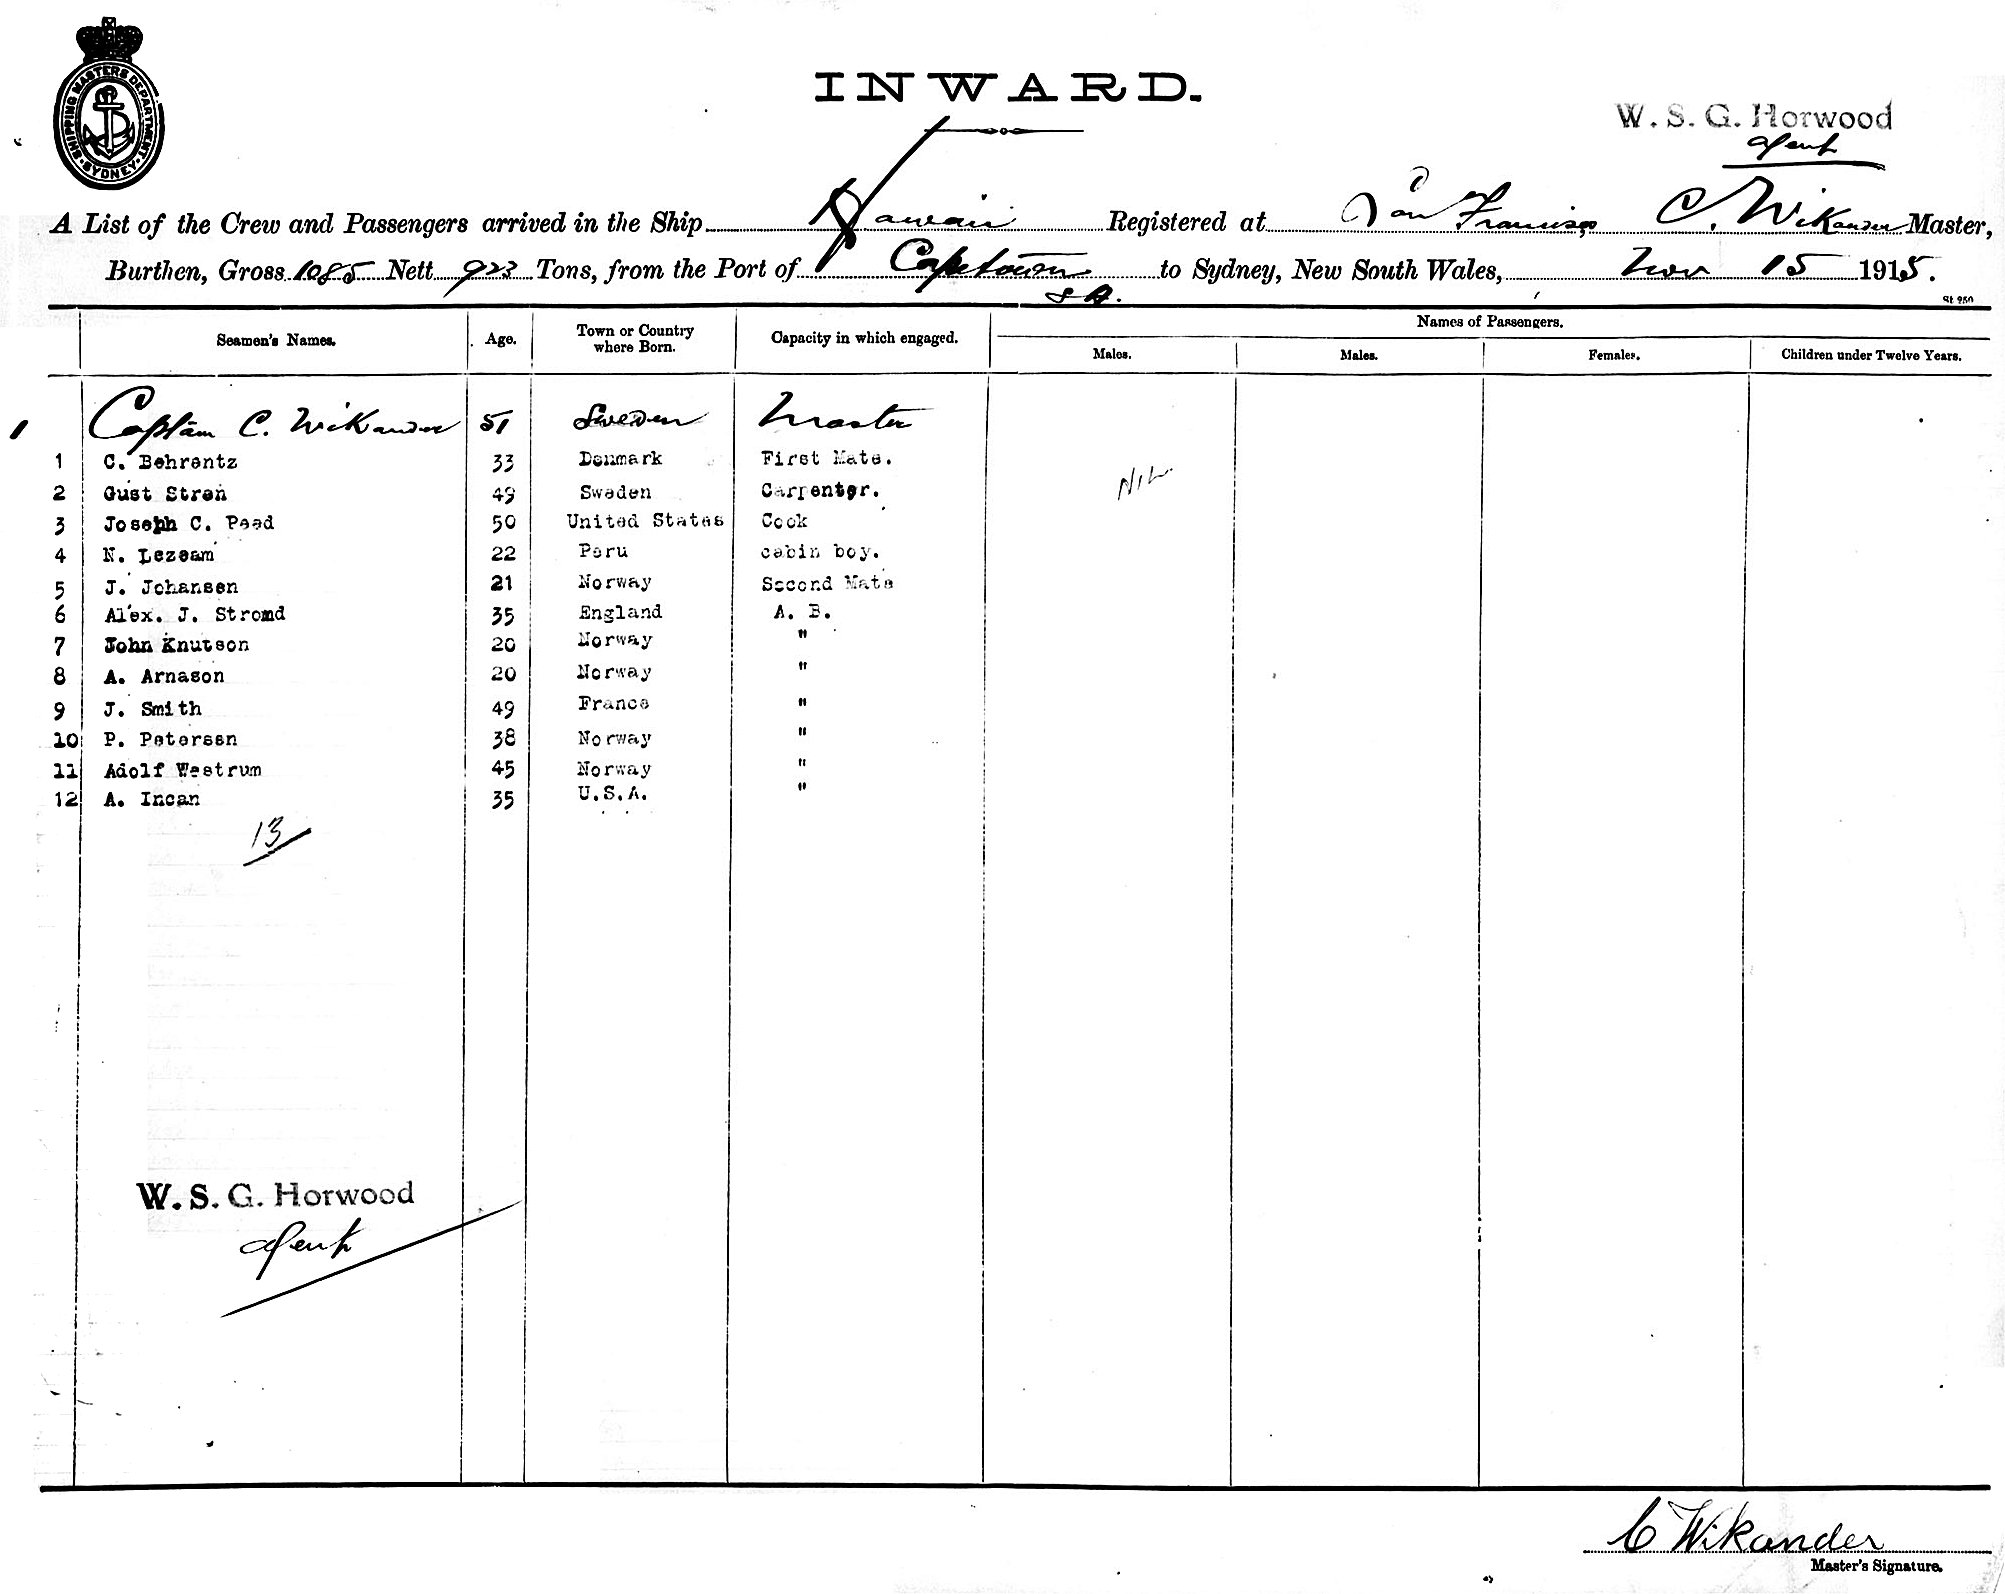 SHIPPING MASTERS DEPARTMENT
SYDNEY
INWARD.
W. S. G. Horwood
Agent
A List of the Crew and Passengers arrived in the Ship Hawaii Registered at San Francisco C. Wikander Master,
Burthen, Gross 1085 Nett 923 Tons, from the Port of Capetown to Sydney, New South Wales, Nov 15 1915.
S A.
St 250
Seamen's Names. Age. Town or Country where Born. Capacity in which engaged. Names of Passengers.
Males. Males. Females. Children under Twelve Years.
1 Captain C. Wikander 51 Sweden Master
1 C. Behrentz 33 Denmark First Mate.
2 Gust Stren 49 Sweden Carpenter.
Nil
3 Joseph C. Peed 50 United States Cook
4 N. Lezeam 22 Peru cabin boy.
5 J. Johansen 21 Norway Second Mate
6 Alex. J. Stromd 35 England A. B.
7 John Knutson 20 Norway "
8 A. Arnason 20 Norway "
9 J. Smith 49 France "
10 P. Petersen 38 Norway "
11 Adolf Westrum 45 Norway "
12 A. Incan 35 U.S.A. "
13
W. S. G. Horwood
Agent
C Wikander
Master's Signature.